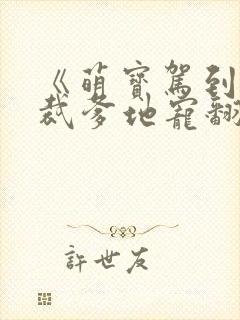 《萌寶駕到
裁爹地寵翻
許世友